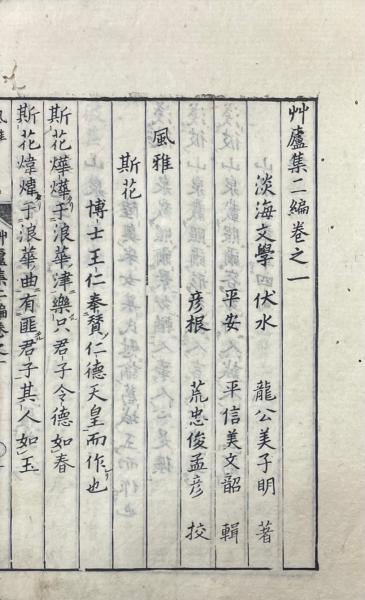 艸廬集二編卷之一
淡海文學 伏水 龍公美子明 著
平安 平信美文韶 輯
彦根 荒忠俊孟彦 挍
風雅
斯花
博士王仁奉賛仁德天皇而作也
斯花燁燁于浪華津樂只君子令德如春
斯花煒煒于浪華曲有匪君子其人如玉